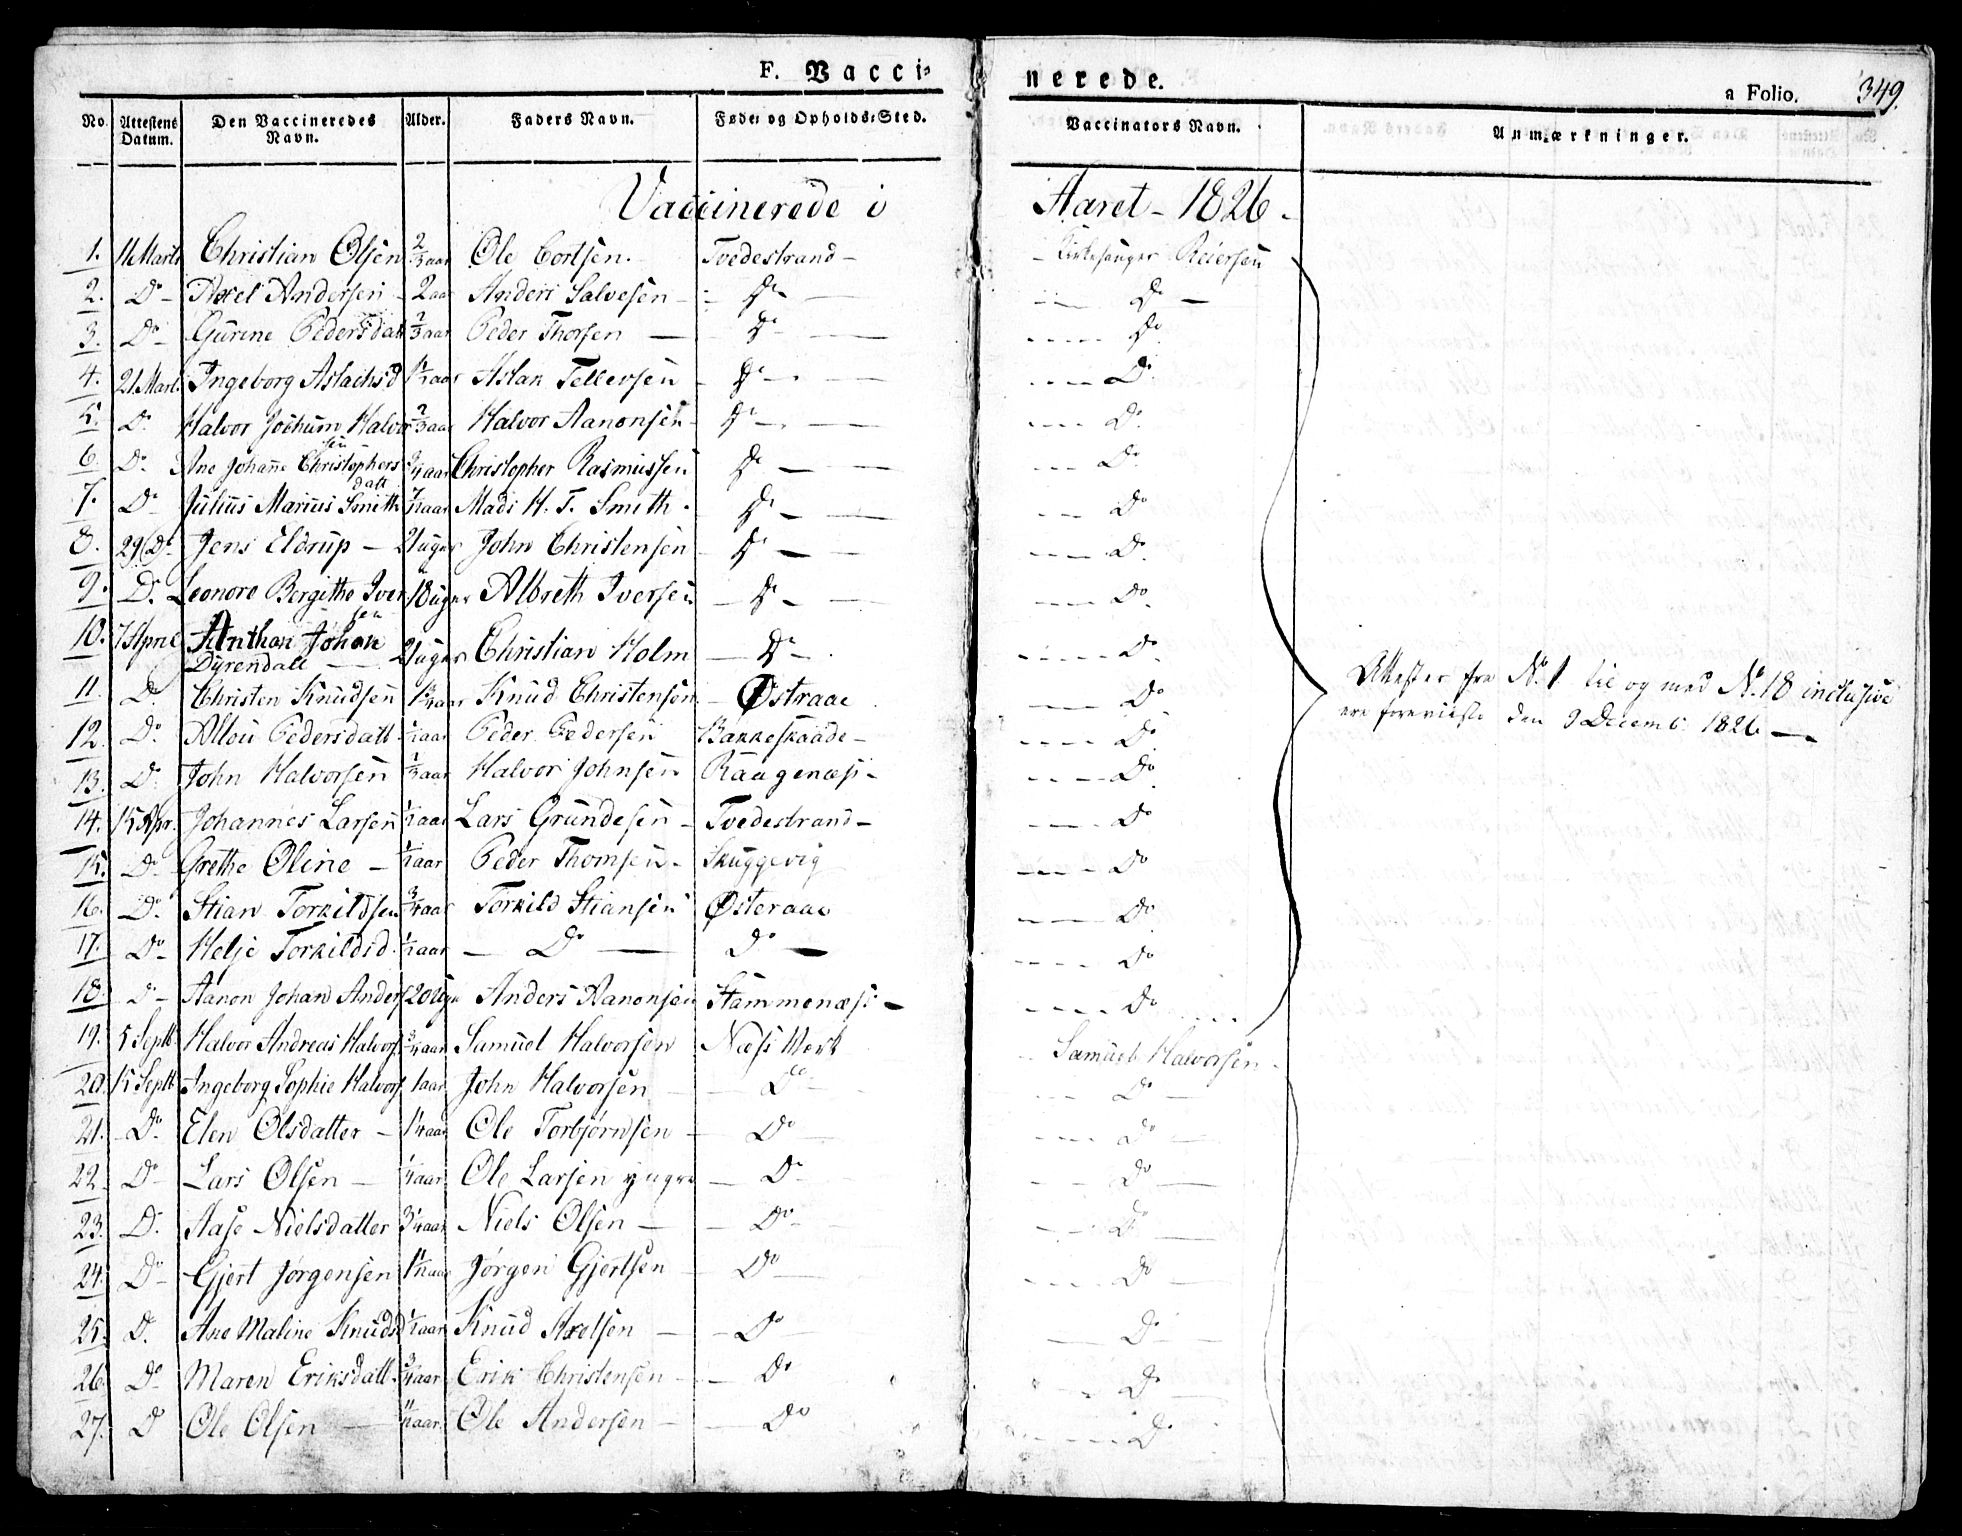 F. Vacci=
nerede.
a Folio. 349.
No. Attestens Datum. Den Vaccineredes Navn. Alder. Faders Navn. Føde= og Opholds=Sted. Vaccinators Navn. Anmærkninger.
Vaccinerede i Aaret - 1826 -
1. 11 Marts Christian Olsen 2/3 aar Ole Cortsen. Tvedestrand - Kirkesanger Reiersen
2. Do - Axel Andersen - 2 aar Anders Salvesen - Do - Do -
3. Do - Gurine Pedersdatt 2/3 aar Peder Thorsen - Do - Do
4. 21 Marts Ingeborg Aslachsd Aslak Tellevsen - Do - Do
5. Do Halvor Jochum Halvor 2/3 aar Halvor Aanonsen - Do - Do
sen
6. Do Ane Johanne Christophers 3/4 aar Christopher Rasmussen Do - Do
datt
7. Do Julius Marius Smith Mads H. T. Smith. Do - Do
8. 29 Do Jens Eldrup - 21 uger John Christensen Do - Do
9. Do Leonore Bergitthe Iver 18 uger Albreth Iversen - Do - Do
sen
10. 7 April Anthon Johan
Dyrendall - 21 uger Christian Holm - Do - Do
11. Do Christen Knudsen Knud Christensen - Østraae Do
12. Do Pedersdatt 1/2 aar Peder Pedersen Bakkeskaade - Do
13. Do John Halvorsen 1/3 aar Halvor Johnsen Raagenæs - Do
14. 15 Apr. Johannes Larsen 1/2 aar Lars Grundesen - Tvedestrand - Do
15. Do Grethe Oline - 1/2 aar Peder Thomsen - Skuggevig Do
16. Do Stian Torkildsen 3/4 aar Torkild Stiansen Østeraae Do
17. Do Helje Torkildsd. 1/2 aar - Do - Do - Do
18. Do - Aanon Johan Anders 20 Uger Anders Aanonsen Hammenæs - Do
Attester fra No. 1 til og med No. 18 inclusive
ere foreviiste den 9 Decemb. 1826 -
19. 5 Septb Halvor Andreas Halvors 3/4 aar Samuel Halvorsen Næss Verk Samuel Halvorsen -
20. 15 Septb Ingeborg Sophie Halvors 1 aar John Halvorsen - Do - Do -
21. Do Elen Olsdatter - 1 1/4 aar Ole Torbjørnsen - Do - Do -
22. Do Lars Olsen - 1/4 aar Ole Larsen yngre - Do - Do -
23. Do Aase Nielsdatter 3 1/4 aar Niels Olsen - Do - Do -
24. Do Gjert Jørgensen Jørgen Gjertsen - Do - Do -
25. Do Ane Maline Knudsd 1/2 aar Knud Axelsen - Do - Do -
26. Do Maren Eriksdatt. 3/4 aar Erik Christensen - Do - Do -
27. Do Ole Olsen - Ole Andersen - Do - Do